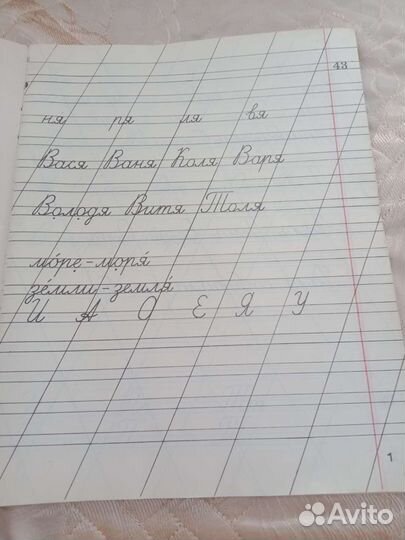 43
ня ря ия вя
Вася Ваня Коля Варя
Володя Витя Толя
мо́ре-моря́
зе́мли-земля́
И А О Е Я У
1
Avito